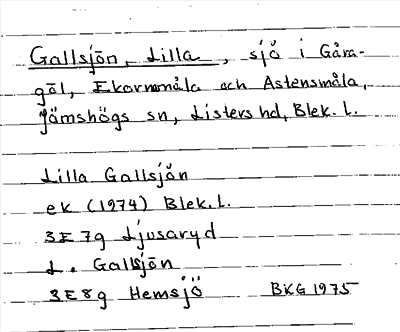 Gallsjön, Lilla, sjö i Gåra-
göl, Ekormmåla och Astensmåla,
Jämshögs sn, Listers hd, Blek. l.
Lilla Gallsjön
ek (1974) Blek. l.
3E 7g Ljusaryd
L. Gallsjön
3E8g Hemsjö BKG 1975